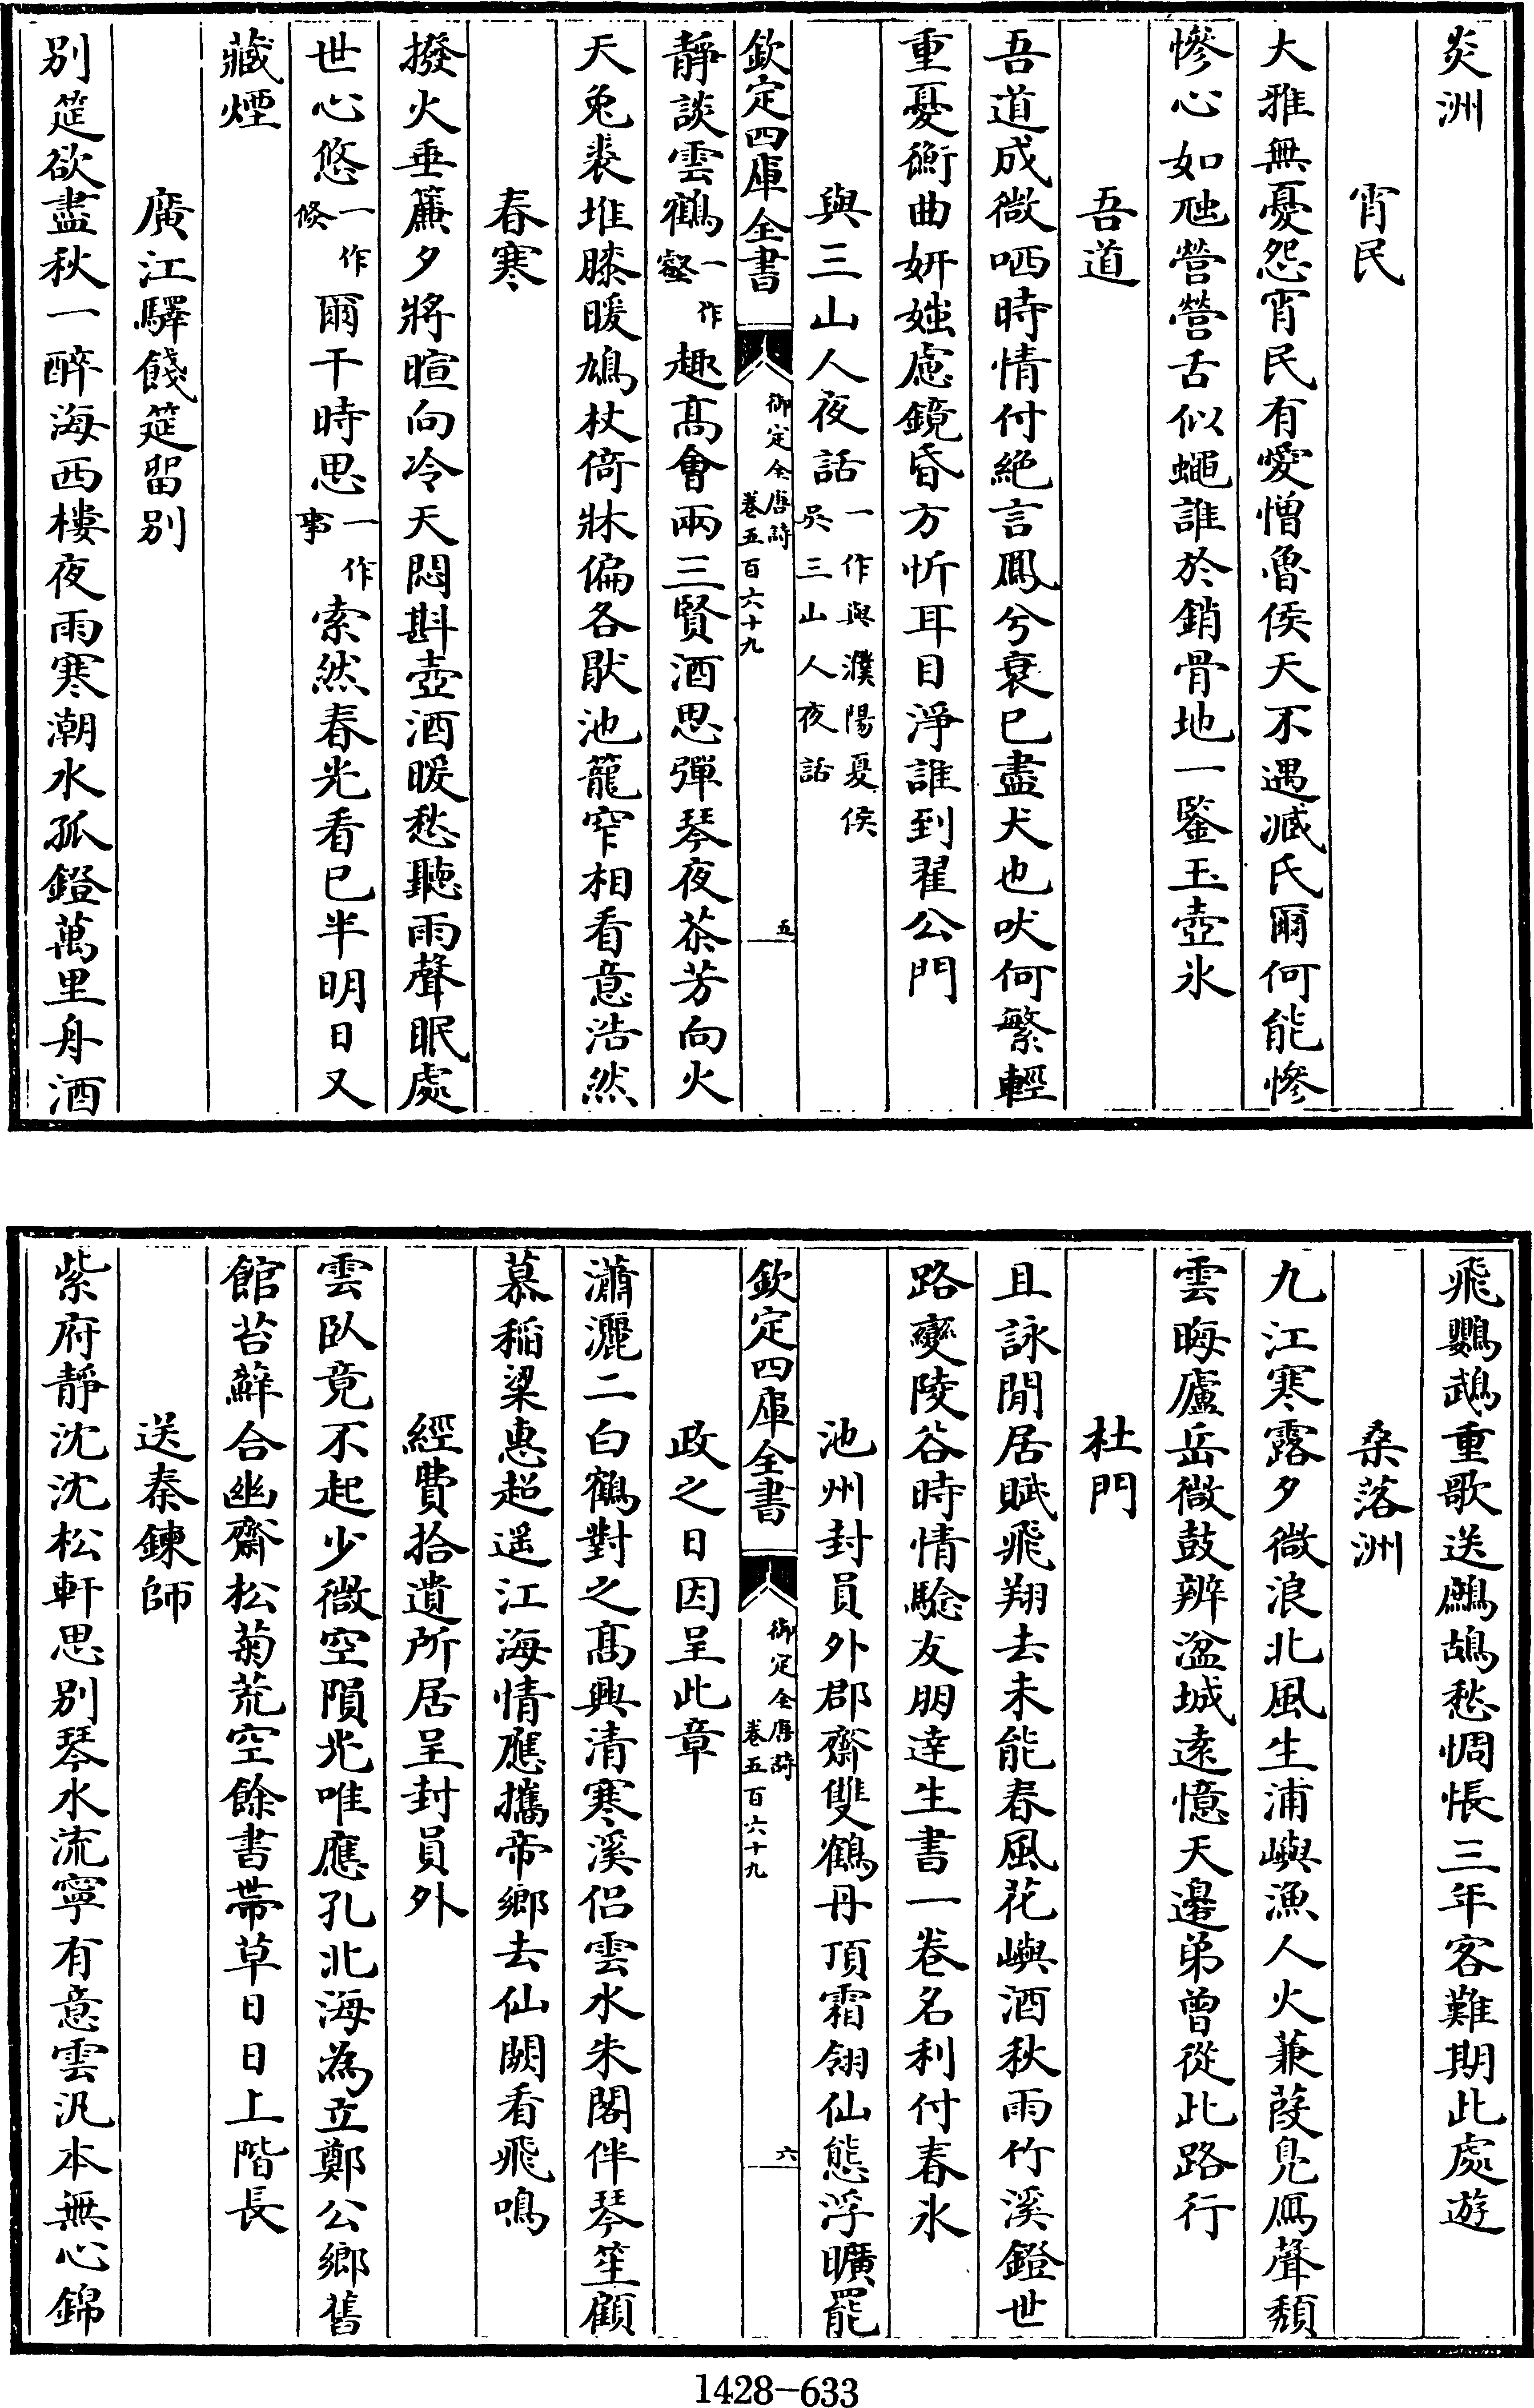 炎洲
宵民
大雅無憂怨宵民有愛憎魯侯天不遇臧氏爾何能慘
慘心如虺營營舌似蠅誰於銷骨地一鑒玉壺氷
吾道
吾道成微哂時情付絶言鳳兮衰已盡犬也吠何繁輕
重憂衡曲妍媸慮鏡昏方忻耳目淨誰到翟公門
與三山人夜話一作與濮陽夏侯吳三山人夜話
欽定四庫全書
御定全唐詩
卷五百六十九
五
靜談雲鶴一作壑趣髙會兩三賢酒思彈琴夜茶芳向火
天兔裘堆膝暖鳩杖倚牀偏各厭池籠窄相看意浩然
春寒
撥火垂簾夕將暄向冷天悶斟壺酒暖愁聽雨聲眠處
世心悠一作倏爾干時思一作事索然春光看已半明日又
藏煙
廣江驛餞筵留别
别筵欲盡秋一醉海西樓夜雨寒潮水孤鐙萬里舟酒
飛鸚鵡重歌送鷓鴣愁惆悵三年客難期此處遊
桑落洲
九江寒露夕微浪北風生浦嶼漁人火蒹葭鳬鴈聲頽
雲晦廬岳微鼓辨湓城遠憶天邊弟曾從此路行
杜門
且詠閒居賦飛翔去未能春風花嶼酒秋雨竹溪鐙世
路變陵谷時情驗友朋達生書一卷名利付春氷
池州封員外郡齋雙鶴丹頂霜翎仙態浮曠罷
欽定四庫全書
御定全唐詩
卷五百六十九
六
政之日因呈此章
瀟灑二白鶴對之髙興清寒溪侣雲水朱閣伴琴笙顧
慕稻粱惠超遥江海情應攜帝鄉去仙闕看飛鳴
經費拾遺所居呈封員外
雲臥竟不起少微空隕光唯應孔北海為立鄭公鄉舊
館苔蘚合幽齋松菊荒空餘書帶草日日上階長
送秦鍊師
紫府静沈沈松軒思别琴水流寧有意雲汎本無心錦
1428—633